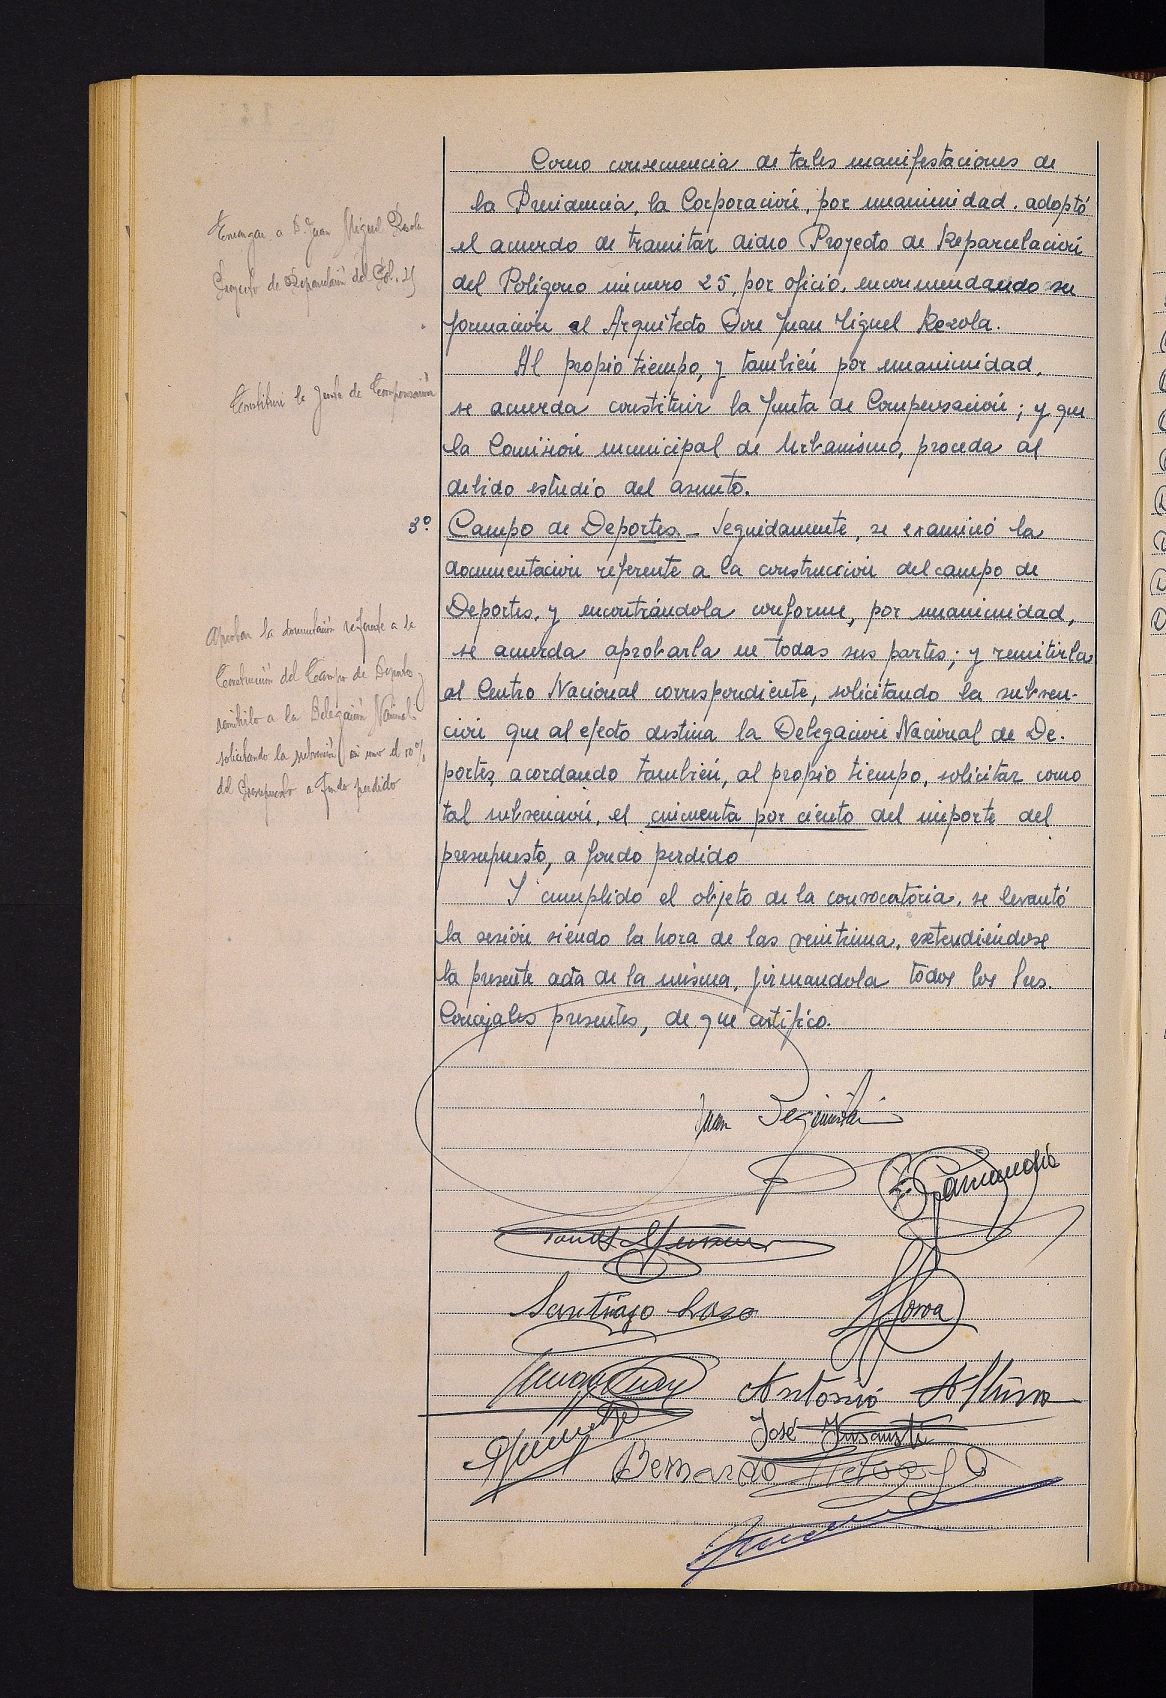 Como consecuencia de tales manifestaciones de
la Presidencia, la Corporación, por unanimidad, adoptó
el acuerdo de tramitar dicho Proyecto de Reparcelación
del Polígono número 25, por oficio, encomendando su
formación al Arquitecto Don Juan Miguel Rezola.
Al propio tiempo, y también por unanimidad,
se acuerda constituir la Junta de Compensación; y que
la Comisión municipal de Urbanismo, proceda al
debido estudio del asunto.
3º Campo de Deportes.- Seguidamente, se examinó la
documentación referente a la construcción del campo de
Deportes, y encontrándola conforme, por unanimidad,
se acuerda aprobarla en todas sus partes; y remitirla
al Centro Nacional correspondiente, solicitando la subven-
ción que al efecto destina la Delegación Nacional de De-
portes, acordando también, al propio tiempo, solicitar como
tal subvención, el cincuenta por ciento del importe del
presupuesto, a fondo perdido
Y cumplido el objeto de la convocatoria, se levantó
la sesión siendo la hora de las veintiuna, extendiéndose
la presente acta de la misma, firmandola todos los Sres.
Concejales presentes, de que certifico.
Encargar a D. Juan Miguel Rezola
Proyecto de Reparcelación del Pol. 25
Constituir la Junta de Compensación
Aprobar la documentación referente a la
Construcción del Campo de Deportes y
remitirlo a la Delegación Nacional
solicitando la subvención
del Presupuesto a fondo perdido
Juan
Santiago Laso
Antonio Altuna
José
Bernardo